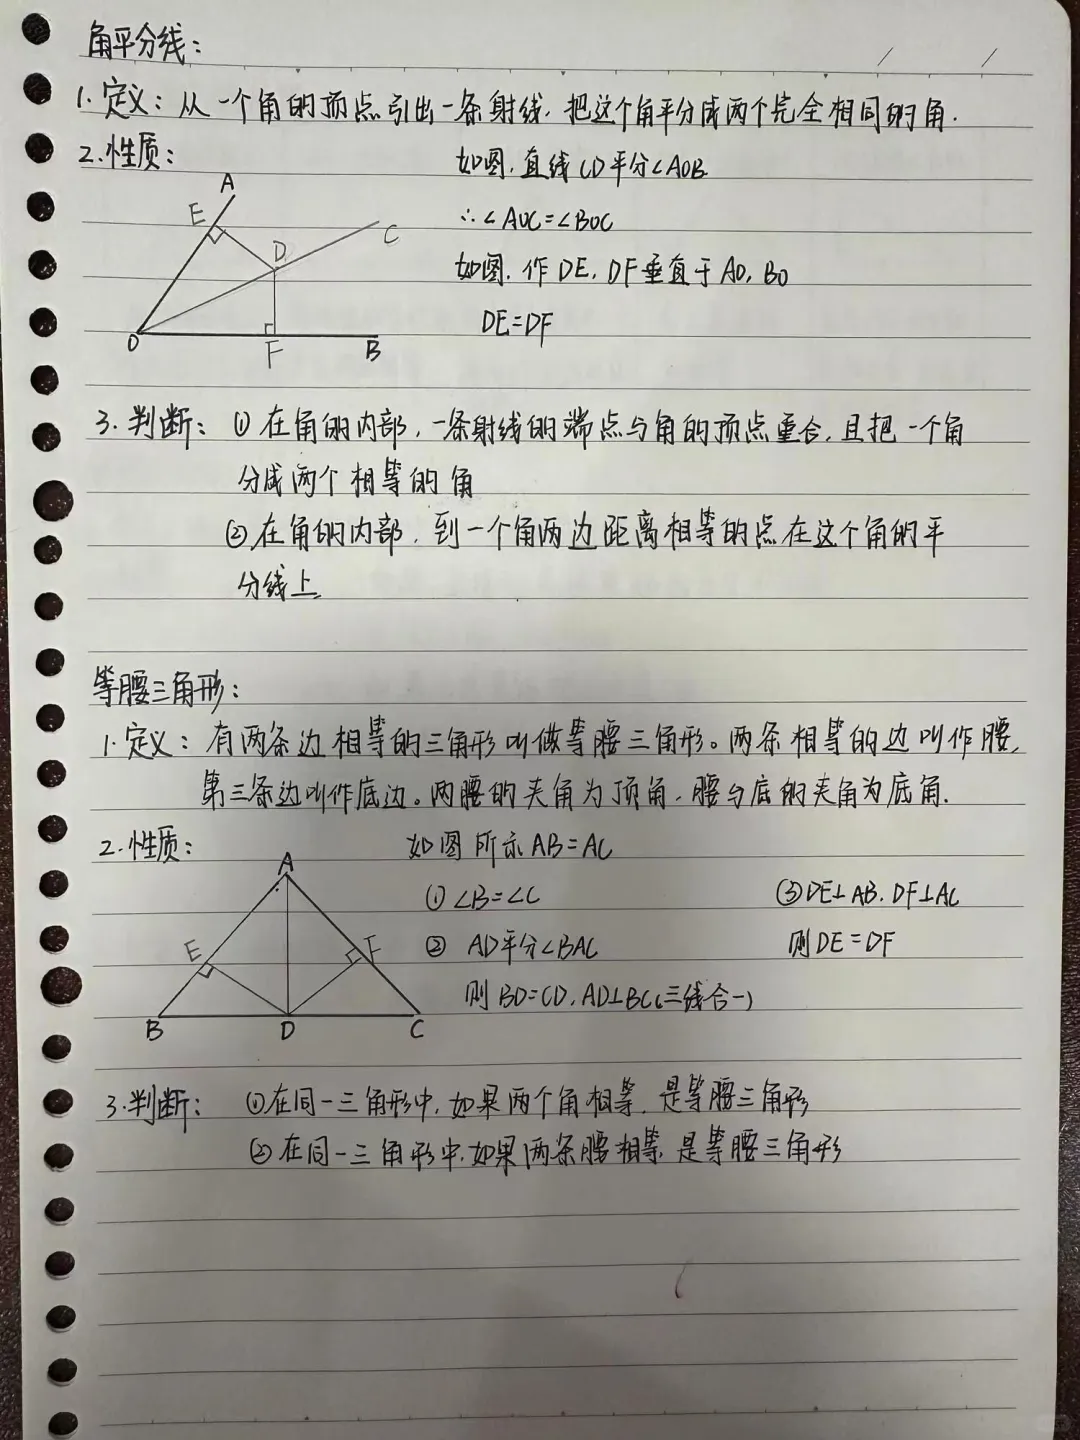 角平分线：
1.定义：从一个角的顶点引出一条射线，把这个角平分成两个完全相同的角.
2.性质：
如图，直线CD平分∠AOB
∴∠AOC=∠BOC
如图，作DE，DF垂直于AO，BO
DE=DF
A
E
D
C
O
F
B
3.判断：①在角的内部，一条射线的端点与角的顶点重合，且把一个角
分成两个相等的角
②在角的内部，到一个角两边距离相等的点在这个角的平
分线上
等腰三角形：
1.定义：有两条边相等的三角形叫做等腰三角形。两条相等的边叫作腰，
第三条边叫作底边。两腰的夹角为顶角，腰与底的夹角为底角.
2.性质：
如图所示AB=AC
①∠B=∠C
②AD平分∠BAC
则BD=CD，AD⊥BC(三线合一)
③DE⊥AB，DF⊥AC
则DE=DF
A
E
F
B
D
C
3.判断：①在同一三角形中，如果两个角相等，是等腰三角形
②在同一三角形中，如果两条腰相等，是等腰三角形